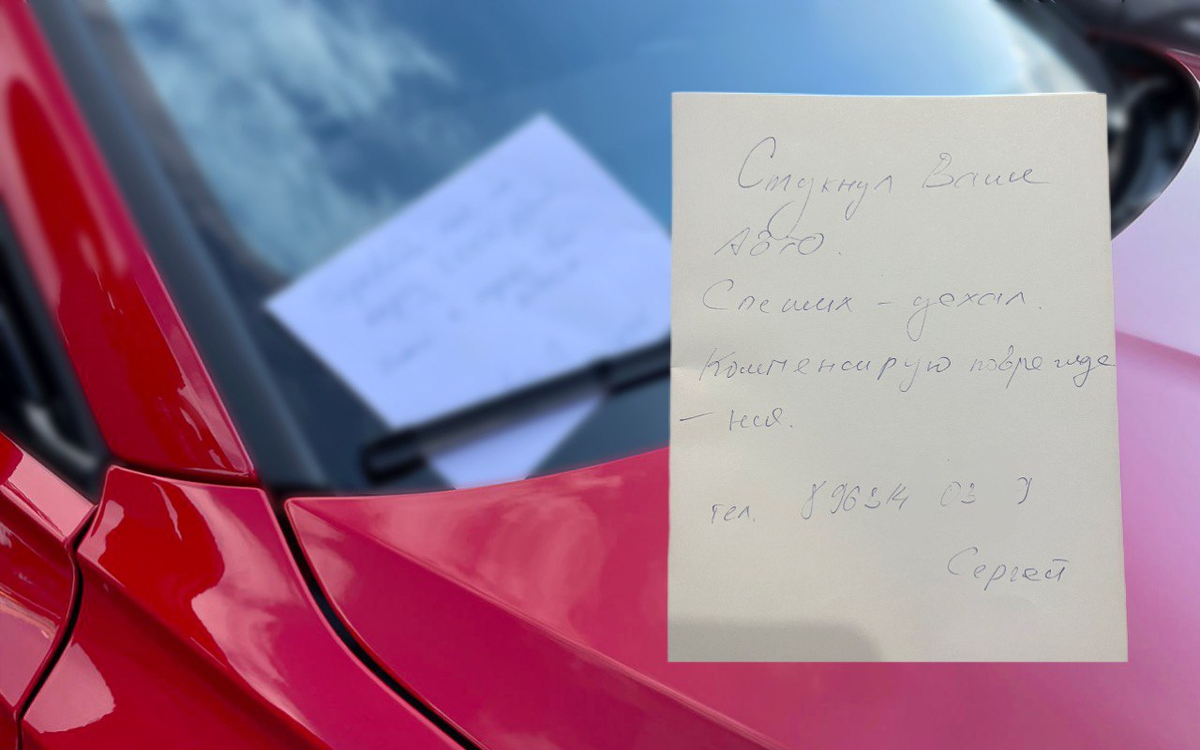 Стукнул Ваше
Авто.
Спешил – уехал.
Компенсирую поврежде
– ния.
тел. 8 96314 03
Сергей